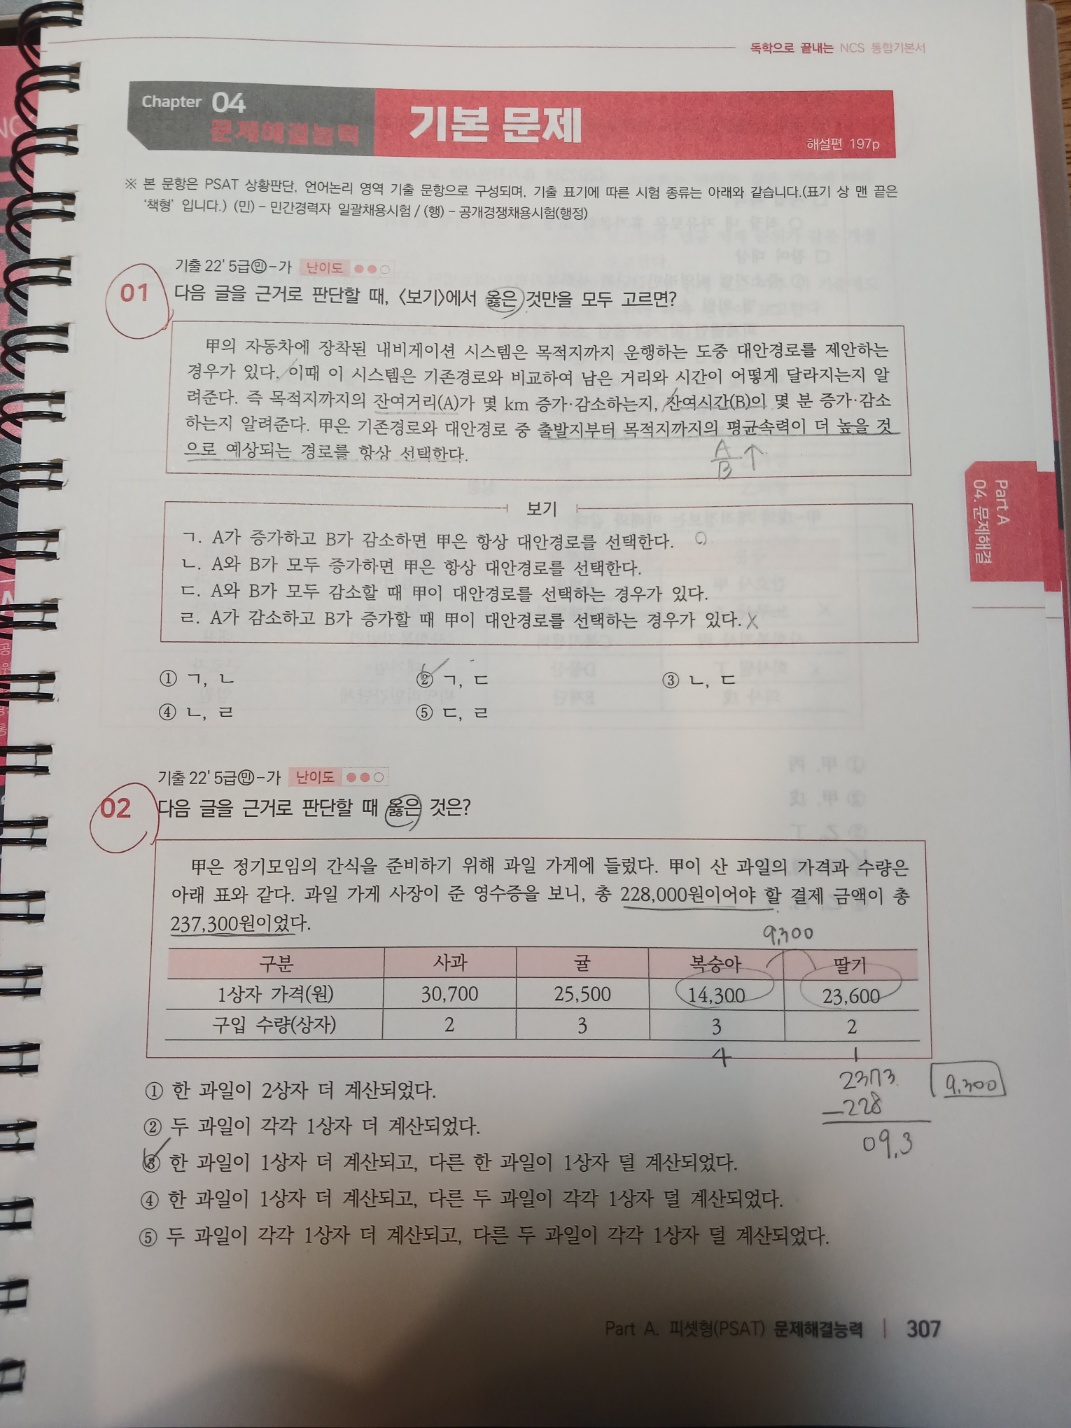 독학으로 끝내는 NCS 통합기본서
Chapter 04
문제해결능력
기본 문제
해설편 197p
※ 본 문항은 PSAT 상황판단, 언어논리 영역 기출 문항으로 구성되며, 기출 표기에 따른 시험 종류는 아래와 같습니다.(표기 상 맨 끝은
‘책형’ 입니다.) (민) - 민간경력자 일괄채용시험 / (행) - 공개경쟁채용시험(행정)
기출 22' 5급㉮민-가 난이도 ●●○
01 다음 글을 근거로 판단할 때, 〈보기〉에서 옳은 것만을 모두 고르면?
甲의 자동차에 장착된 내비게이션 시스템은 목적지까지 운행하는 도중 대안경로를 제안하는
경우가 있다. 이때 이 시스템은 기존경로와 비교하여 남은 거리와 시간이 어떻게 달라지는지 알
려준다. 즉 목적지까지의 잔여거리(A)가 몇 km 증가·감소하는지, 잔여시간(B)이 몇 분 증가·감소
하는지 알려준다. 甲은 기존경로와 대안경로 중 출발지부터 목적지까지의 평균속력이 더 높을 것
으로 예상되는 경로를 항상 선택한다.
A/B ↑
보기
ㄱ. A가 증가하고 B가 감소하면 甲은 항상 대안경로를 선택한다. O
ㄴ. A와 B가 모두 증가하면 甲은 항상 대안경로를 선택한다.
ㄷ. A와 B가 모두 감소할 때 甲이 대안경로를 선택하는 경우가 있다.
ㄹ. A가 감소하고 B가 증가할 때 甲이 대안경로를 선택하는 경우가 있다. X
① ㄱ, ㄴ ② ㄱ, ㄷ ③ ㄴ, ㄷ
④ ㄴ, ㄹ ⑤ ㄷ, ㄹ
기출 22' 5급민-가 난이도 ●●○
02 다음 글을 근거로 판단할 때 옳은 것은?
甲은 정기모임의 간식을 준비하기 위해 과일 가게에 들렀다. 甲이 산 과일의 가격과 수량은
아래 표와 같다. 과일 가게 사장이 준 영수증을 보니, 총 228,000원이어야 할 결제 금액이 총
237,300원이었다.
9,300
구분 사과 귤 복숭아 딸기
1상자 가격(원) 30,700 25,500 14,300 23,600
구입 수량(상자) 2 3 3 2
4 1
① 한 과일이 2상자 더 계산되었다.
② 두 과일이 각각 1상자 더 계산되었다.
③ 한 과일이 1상자 더 계산되고, 다른 한 과일이 1상자 덜 계산되었다.
④ 한 과일이 1상자 더 계산되고, 다른 두 과일이 각각 1상자 덜 계산되었다.
⑤ 두 과일이 각각 1상자 더 계산되고, 다른 두 과일이 각각 1상자 덜 계산되었다.
2373
-228
09,3
9,300
Part A
04. 문제해결
Part A. 피셋형(PSAT) 문제해결능력 | 307